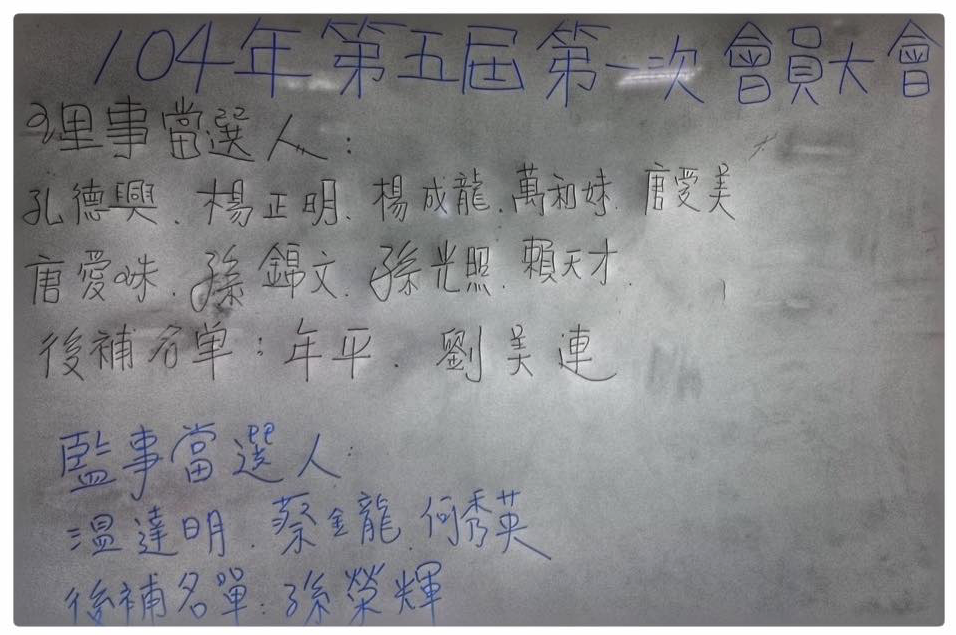 104年第五屆第一次會員大會
理事當選人：
孔德興、楊正明、楊成龍、萬和妹、唐愛美
唐愛咪、孫錦文、孫光照、賴天才、
後補名单：年平、劉美連
監事當選人：
溫達明、蔡金龍、何秀英
後補名單：孫榮輝